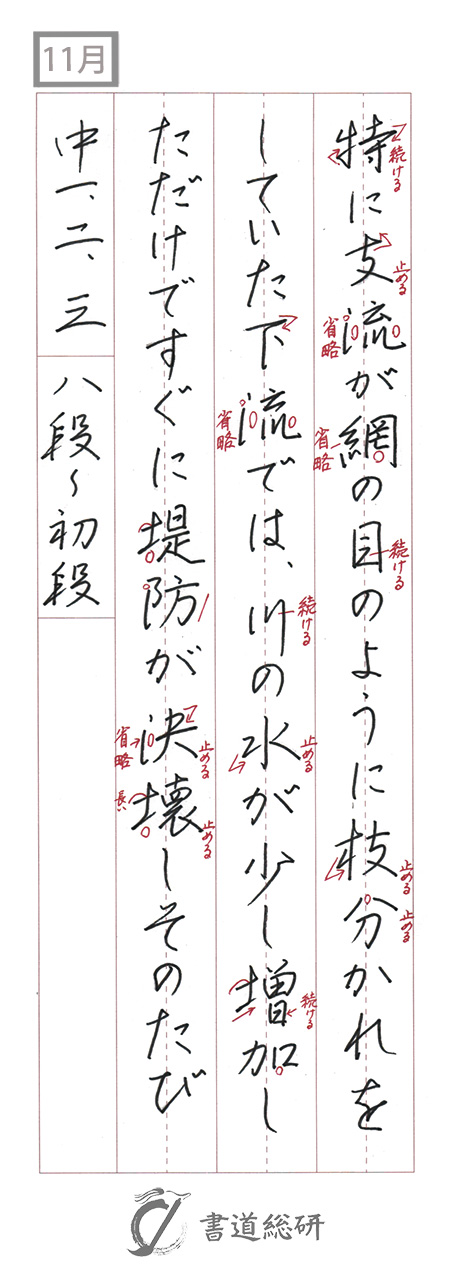 11月
特に支流が網の目のように枝分かれを
していた下流では、川の水が少し増加し
ただけですぐに堤防が決壊しそのたび
中一、二、三
八段〜初段
続ける
止める
省略
省略
続ける
止める
止める
省略
続ける
止める
続ける
省略
止める
長い
止める
書道総研